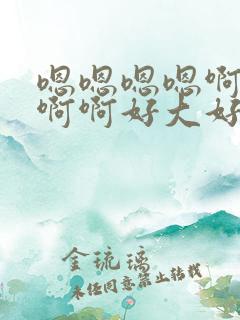 嗯嗯嗯嗯啊
啊啊好大好
金琉璃
未经同意禁止转载